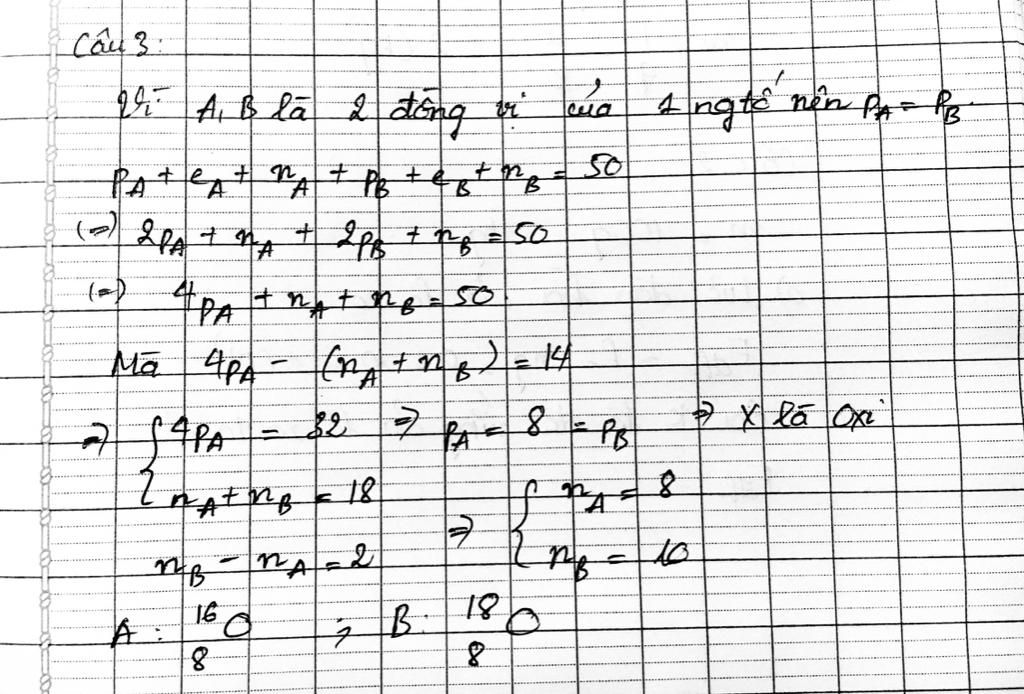 Câu 3:
Vì A, B là 2 đồng vị của 1 ngtố nên pA = pB.
pA + eA + nA + pB + eB + nB = 50
(=) 2pA + nA + 2pB + nB = 50
(=) 4pA + nA + nB = 50.
Mà 4pA - (nA + nB) = 14
=> { 4pA = 32 => pA = 8 = pB => X là Oxi
nA + nB = 18 => { nA = 8
nB - nA = 2 nB = 10
A: ¹⁶₈O ; B: ¹⁸₈O